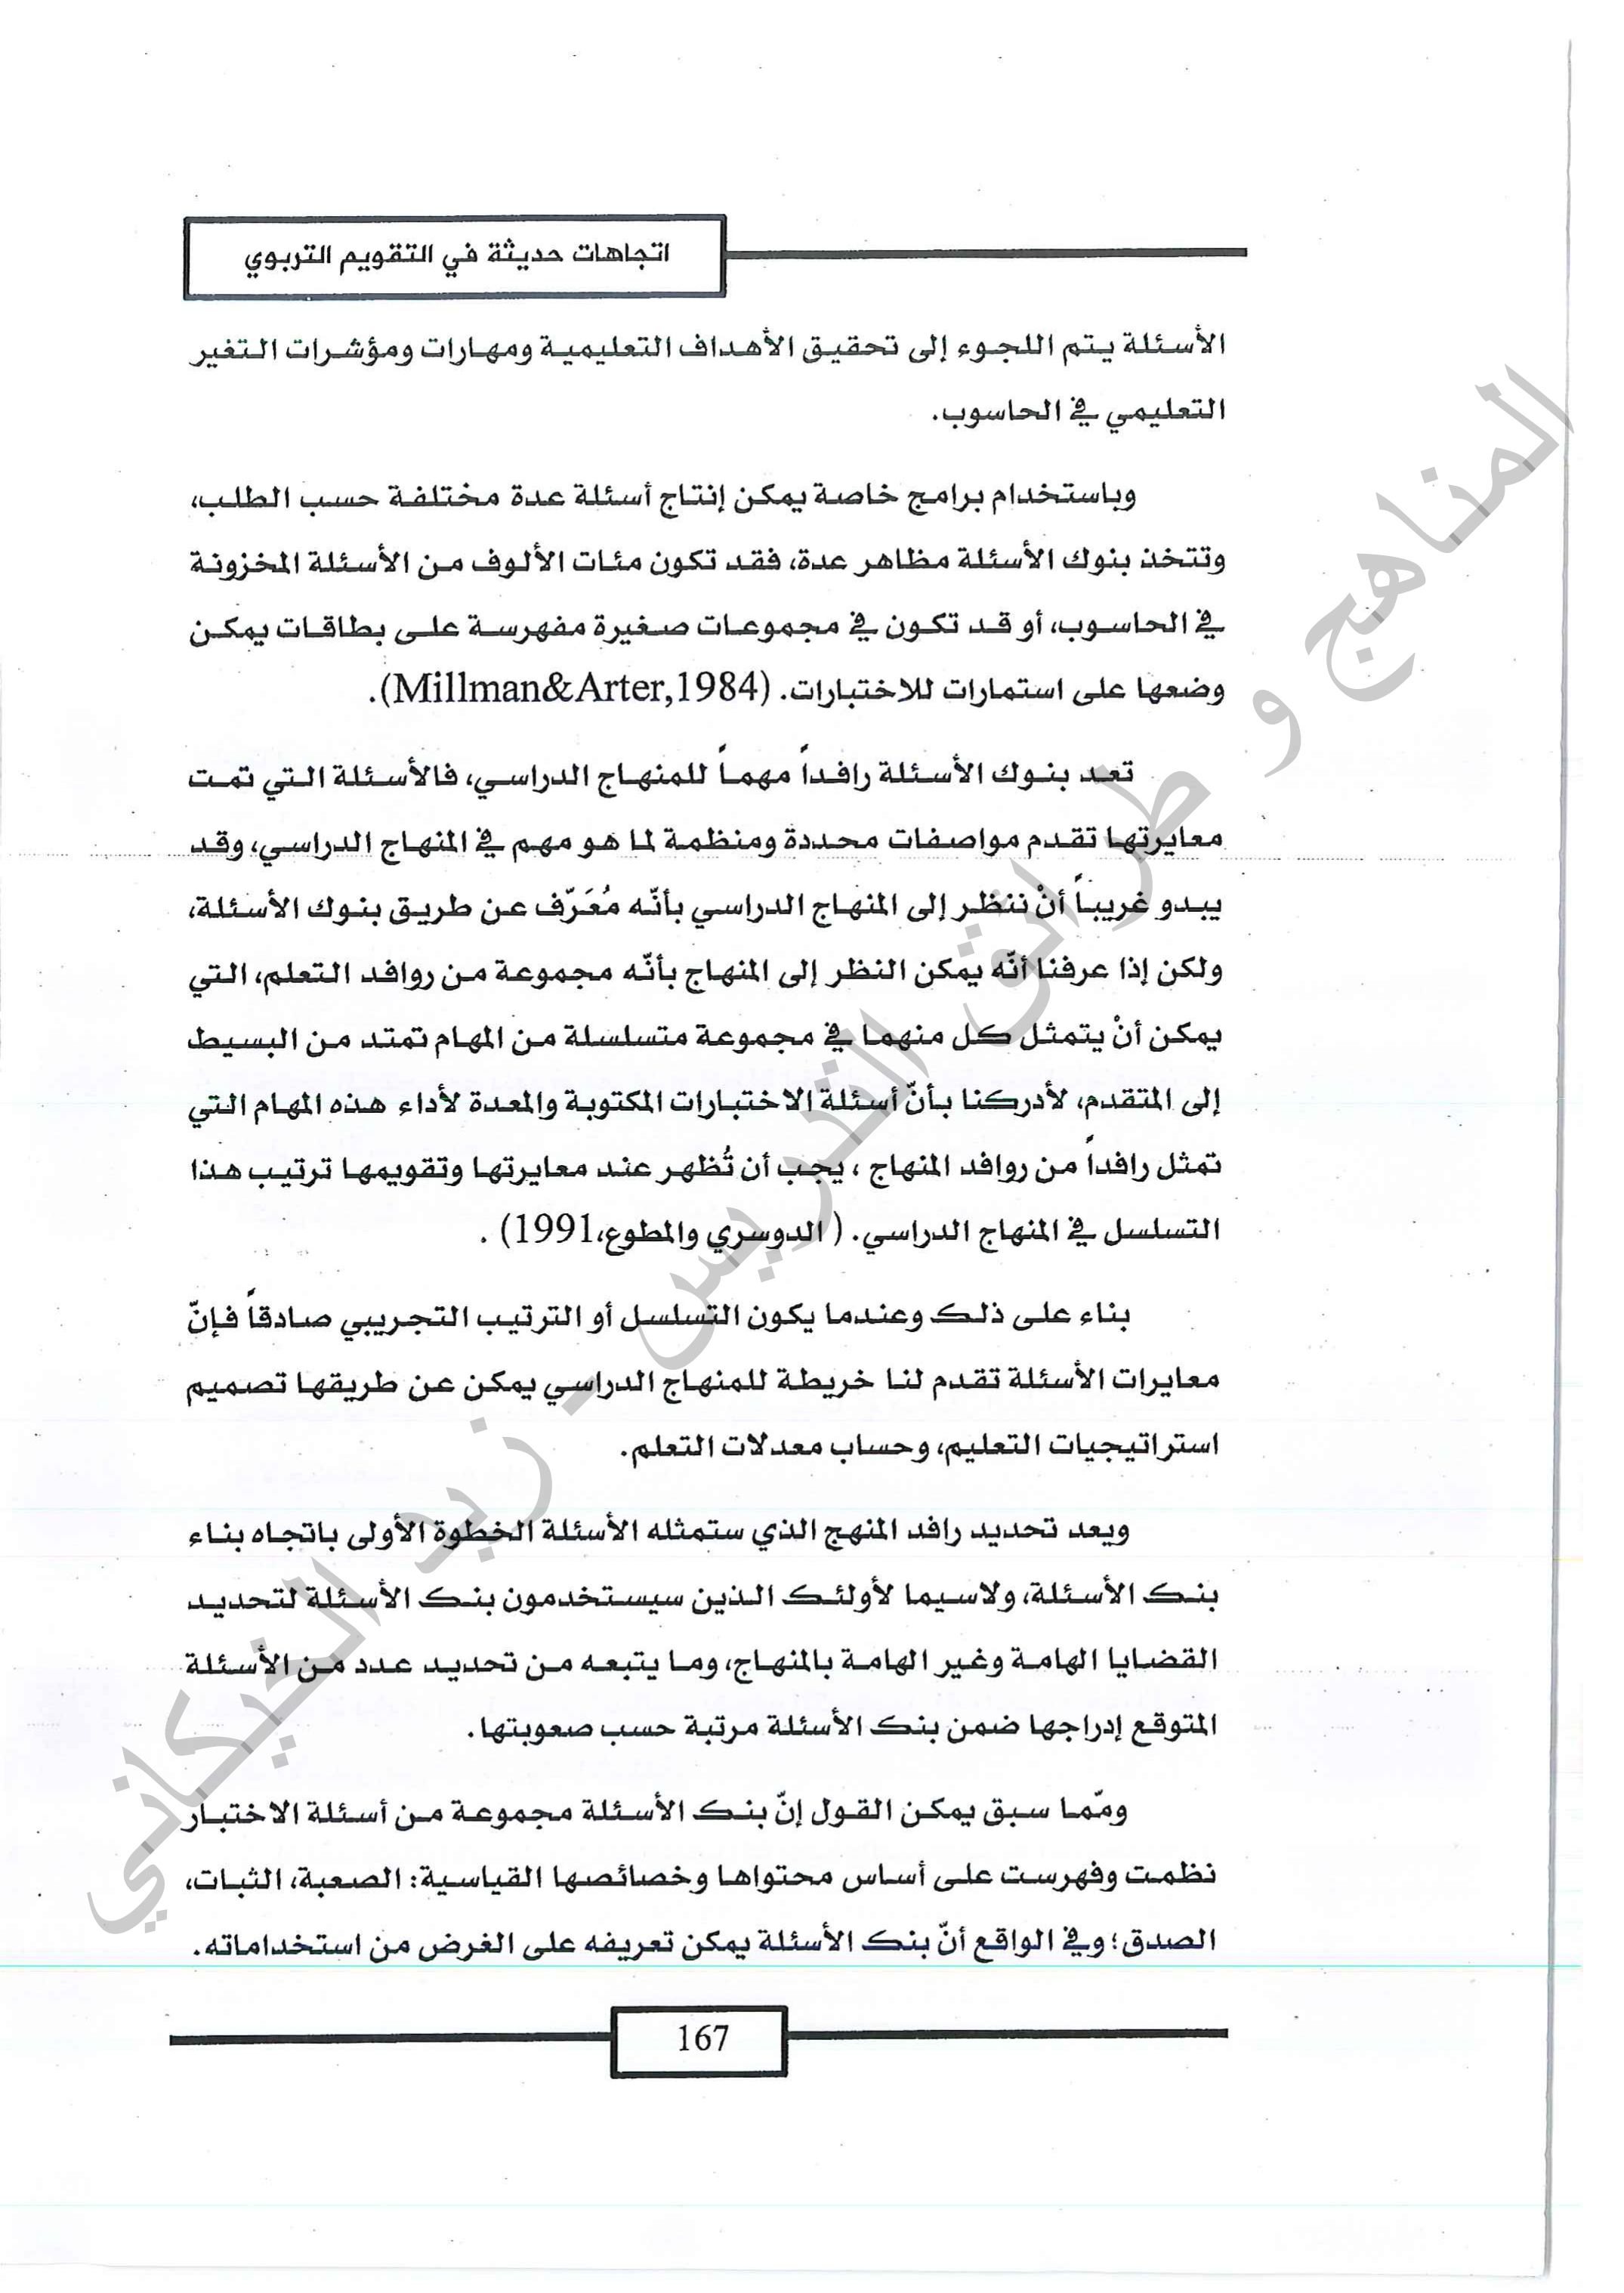 اتجاهات حديثة في التقويم التربوي
الأسئلة يتم اللجوء إلى تحقيق الأهداف التعليمية ومهارات ومؤشرات التغير
التعليمي في الحاسوب.
وباستخدام برامج خاصة يمكن إنتاج أسئلة عدة مختلفة حسب الطلب،
وتتخذ بنوك الأسئلة مظاهر عدة، فقد تكون مئات الألوف من الأسئلة المخزونة
في الحاسوب، أو قد تكون في مجموعات صغيرة مفهرسة على بطاقات يمكن
وضعها على استمارات للاختبارات. (Millman&Arter,1984).
تعد بنوك الأسئلة رافداً مهماً للمنهاج الدراسي، فالأسئلة التي تمت
معايرتها تقدم مواصفات محددة ومنظمة لما هو مهم في المنهاج الدراسي، وقد
يبدو غريباً أنْ ننظر إلى المنهاج الدراسي بأنّه مُعَرّف عن طريق بنوك الأسئلة،
ولكن إذا عرفنا أنّه يمكن النظر إلى المنهاج بأنّه مجموعة من روافد التعلم، التي
يمكن أنْ يتمثل كل منهما في مجموعة متسلسلة من المهام تمتد من البسيط
إلى المتقدم، لأدركنا بأنّ أسئلة الاختبارات المكتوبة والمعدة لأداء هذه المهام التي
تمثل رافداً من روافد المنهاج ، يجب أن تُظهر عند معايرتها وتقويمها ترتيب هذا
التسلسل في المنهاج الدراسي. ( الدوسري والمطوع،1991) .
بناء على ذلك وعندما يكون التسلسل أو الترتيب التجريبي صادقاً فإنّ
معايرات الأسئلة تقدم لنا خريطة للمنهاج الدراسي يمكن عن طريقها تصميم
استراتيجيات التعليم، وحساب معدلات التعلم.
ويعد تحديد رافد المنهج الذي ستمثله الأسئلة الخطوة الأولى باتجاه بناء
بنك الأسئلة، ولاسيما لأولئك الذين سيستخدمون بنك الأسئلة لتحديد
القضايا الهامة وغير الهامة بالمنهاج، وما يتبعه من تحديد عدد من الأسئلة
المتوقع إدراجها ضمن بنك الأسئلة مرتبة حسب صعوبتها.
وممّا سبق يمكن القول إنّ بنك الأسئلة مجموعة من أسئلة الاختبار
نظمت وفهرست على أساس محتواها وخصائصها القياسية: الصعبة، الثبات،
الصدق؛ وفي الواقع أنّ بنك الأسئلة يمكن تعريفه على الغرض من استخداماته.
167
المناهج و طرائق التدريس - زيد الخيكاني